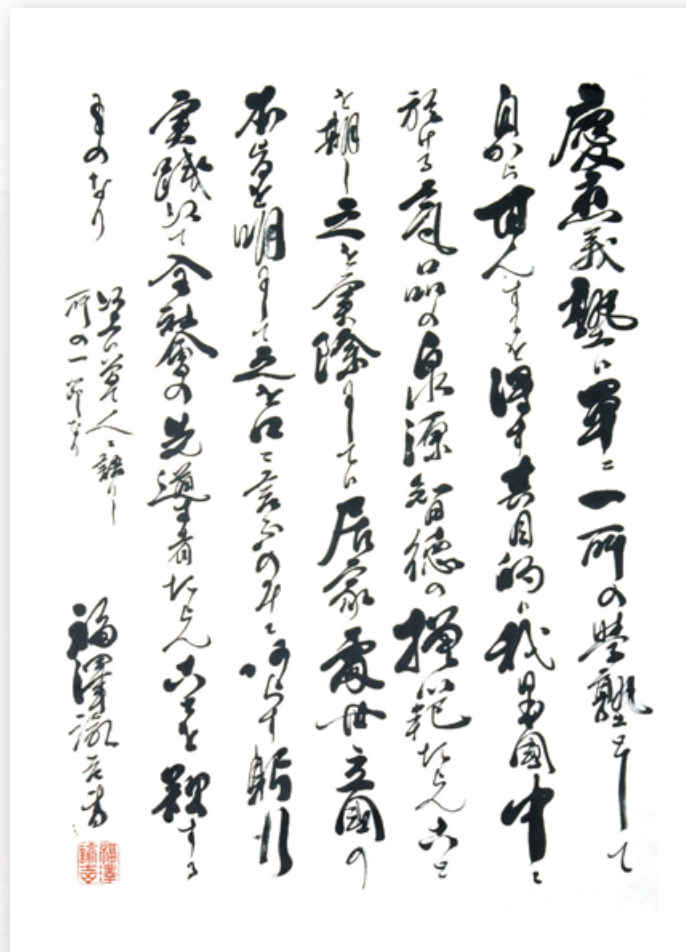 慶應義塾ハ單ニ一所の學塾として
自から甘んするを得す其目的ハ我日本國中ニ
於ける氣品の泉源智徳の模範たらんこと
を期し之を實際ニしてハ居家處世立國の
本旨を明ニして之を口ニ言ふのみニあらす躬行
実踐以て全社會の先導者たらんことを欲する
ものなり
以上ハ曾て人ニ語りし
所の一節なり
福澤諭吉書